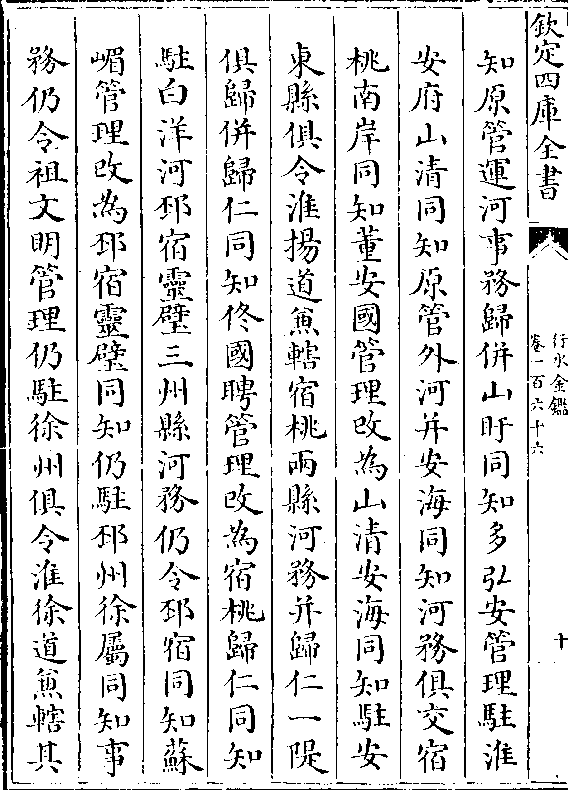 欽定四庫全書
行水金鑑
卷一百六十六
十
知原管運河事務歸併山盱同知多弘安管理駐淮
安府山清同知原管外河并安海同知河務俱交宿
桃南岸同知董安國管理改為山清安海同知駐安
東縣俱令淮揚道兼轄宿桃兩縣河務并歸仁一隄
俱歸併歸仁同知佟國聘管理改為宿桃歸仁同知
駐白洋河邳宿靈璧三州縣河務仍令邳宿同知蘇
嵋管理改為邳宿靈璧同知仍駐邳州徐屬同知事
務仍令祖文明管理仍駐徐州俱令淮徐道兼轄其